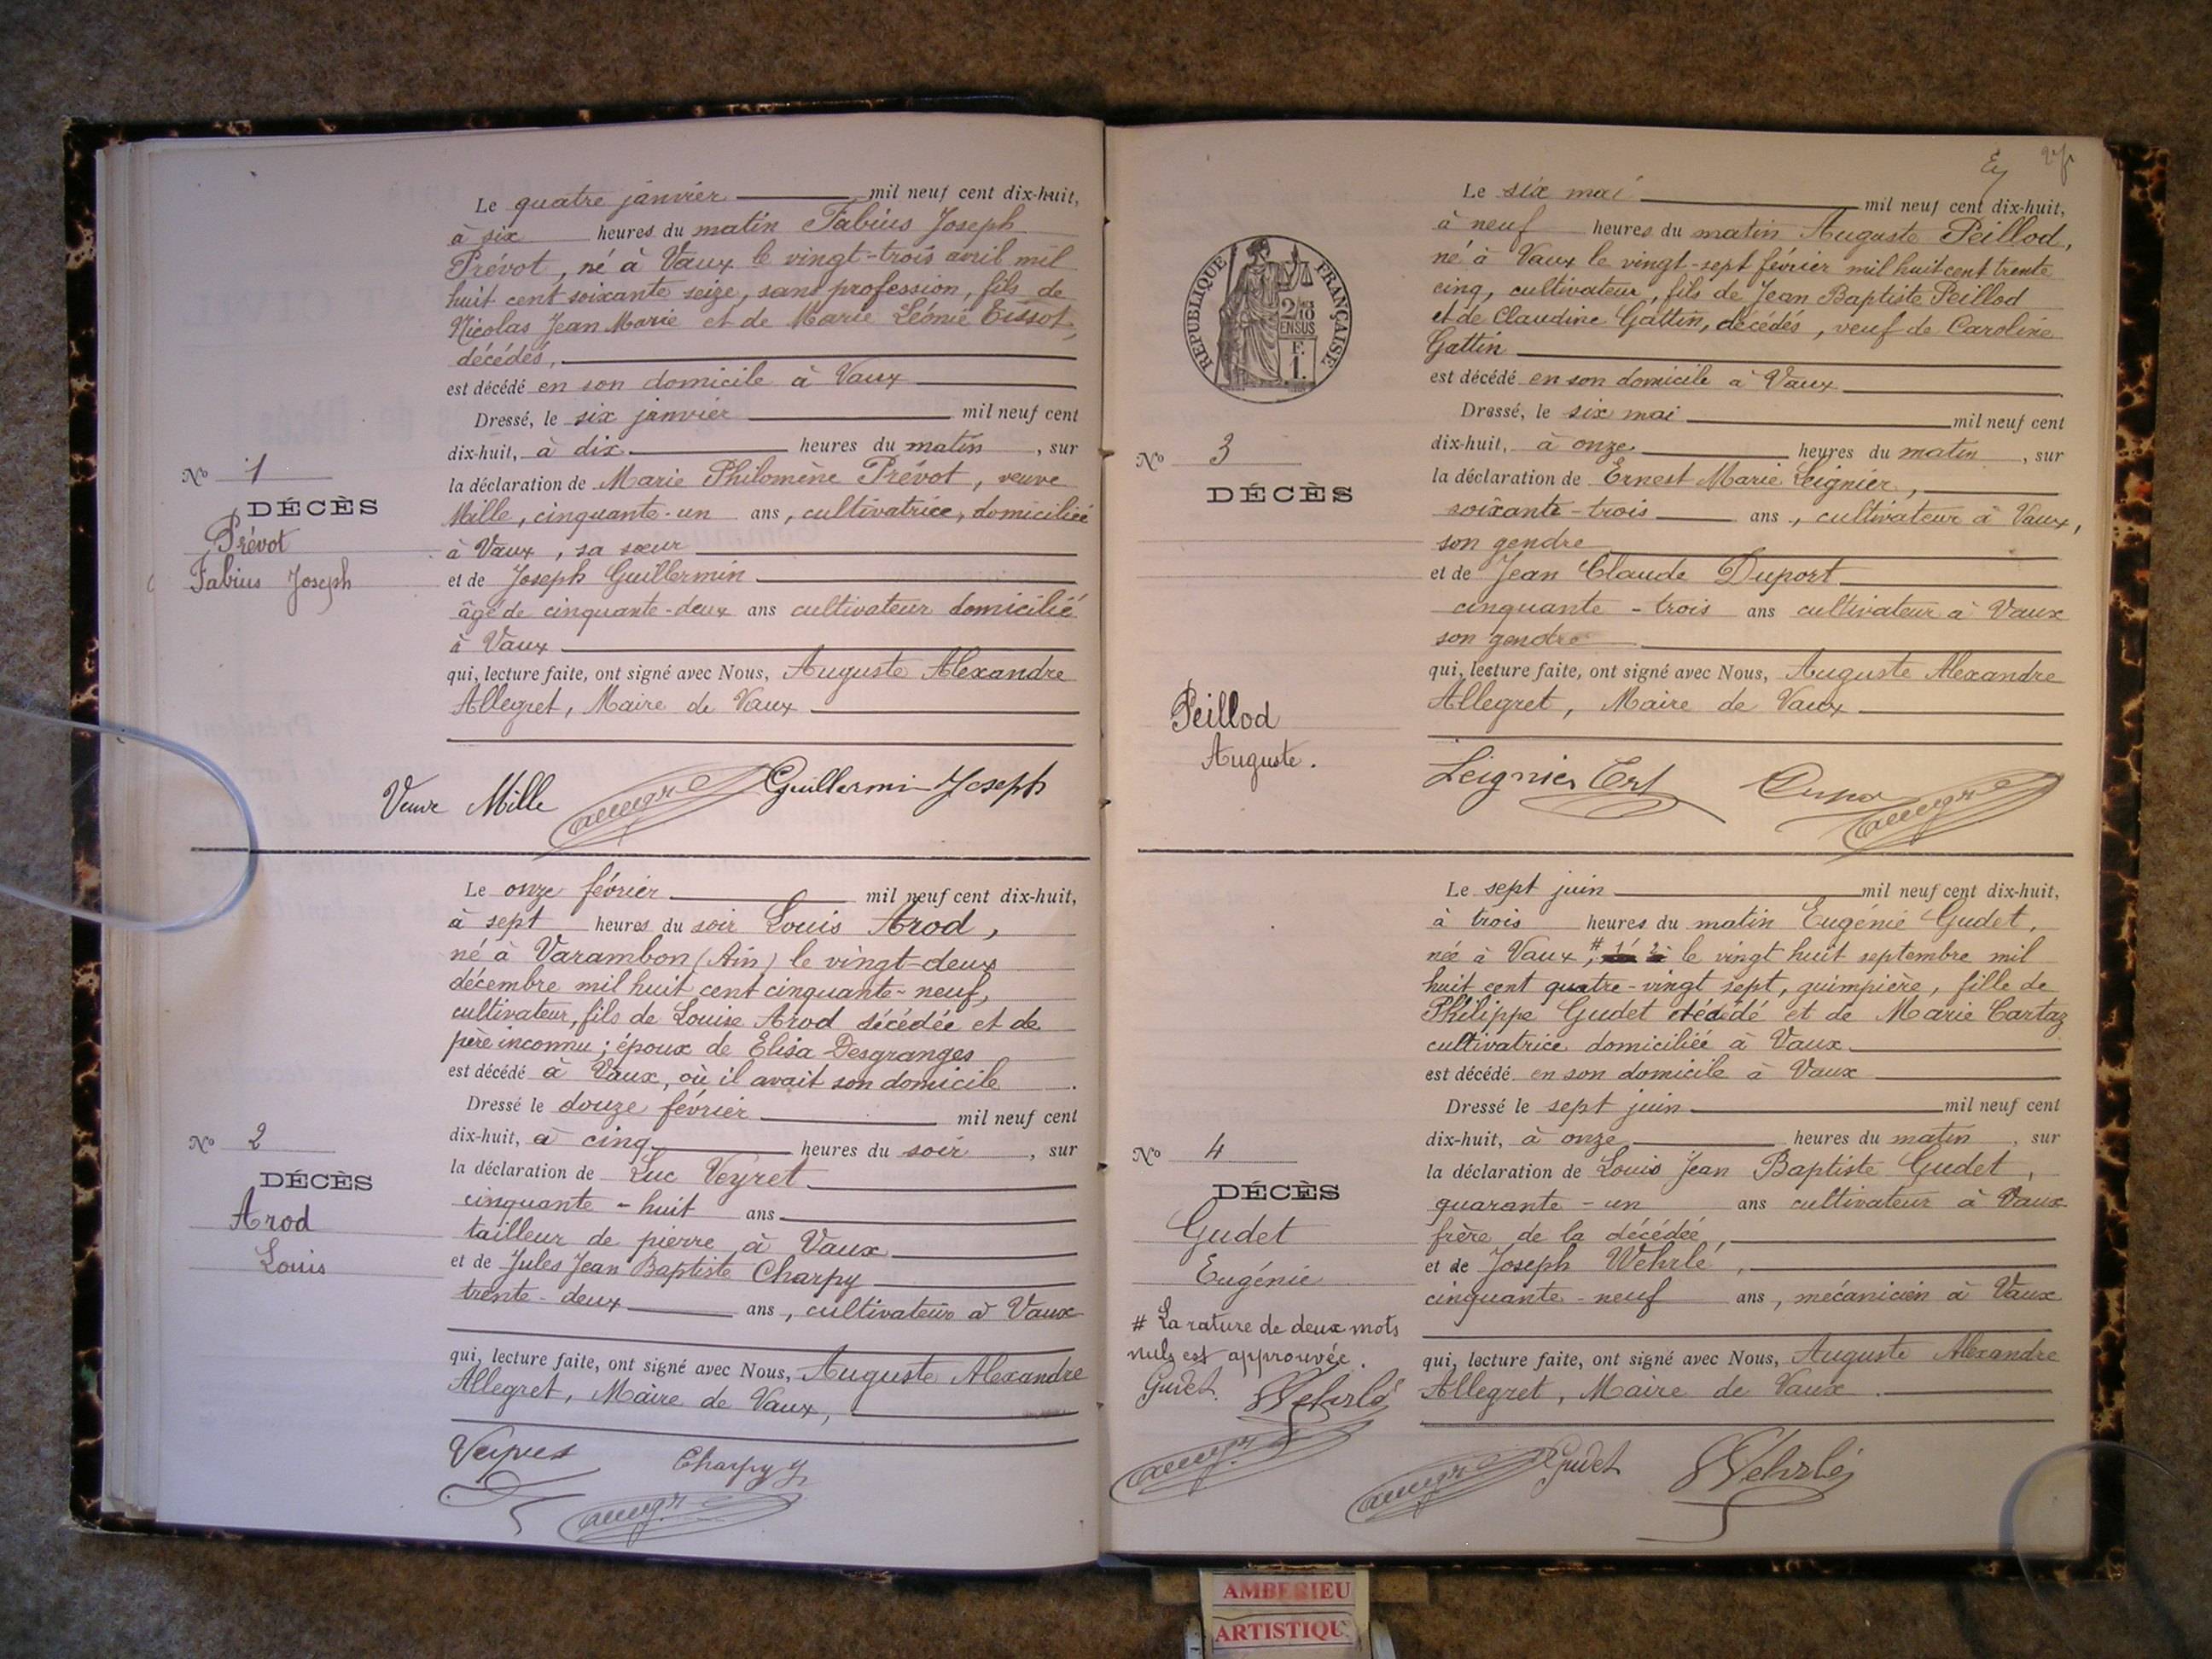 Le quatre janvier mil neuf cent dix-huit,
à six heures du matin Fabius Joseph
Prévot, né à Vaux le vingt-trois avril mil
huit cent soixante seize, sans profession, fils de
Nicolas Jean Marie et de Marie Léonie Tissot,
décédés,
est décédé en son domicile à Vaux
Dressé, le six janvier mil neuf cent
dix-huit, à dix heures du matin, sur
la déclaration de Marie Philomène Prévot, veuve
Mille, cinquante-un ans, cultivatrice, domiciliée
à Vaux, sa sœur
et de Joseph Guillermin
âgé de cinquante-deux ans cultivateur domicilié
à Vaux
qui, lecture faite, ont signé avec Nous, Auguste Alexandre
Allegret, Maire de Vaux
No 1
DÉCÈS
Prévot
Fabius Joseph
Veuve Mille Guillermin Joseph
Le onze février mil neuf cent dix-huit,
à sept heures du soir Louis Arod,
né à Varambon (Ain) le vingt-deux
décembre mil huit cent cinquante-neuf,
cultivateur, fils de Louise Arod décédée et de
père inconnu; époux de Elisa Desgranges
est décédé à Vaux, où il avait son domicile.
Dressé le douze février mil neuf cent
dix-huit, à cinq heures du soir, sur
la déclaration de Luc Veyret
cinquante-huit ans
tailleur de pierre à Vaux
et de Jules Jean Baptiste Charpy
trente-deux ans, cultivateur à Vaux
qui, lecture faite, ont signé avec Nous, Auguste Alexandre
Allegret, Maire de Vaux,
No 2
DÉCÈS
Arod
Louis
Charpy J
RÉPUBLIQUE FRANÇAISE
2/10
EN SUS
F.
1.
Le six mai mil neuf cent dix-huit,
à neuf heures du matin Auguste Peillod,
né à Vaux le vingt-sept février mil huit cent trente
cinq, cultivateur, fils de Jean Baptiste Peillod
et de Claudine Gattin, décédés, veuf de Caroline
Gattin
est décédé en son domicile à Vaux
Dressé, le six mai mil neuf cent
dix-huit, à onze heures du matin, sur
la déclaration de Ernest Marie Leignier,
soixante-trois ans, cultivateur à Vaux,
son gendre
et de Jean Claude Duport
cinquante-trois ans cultivateur à Vaux
son gendre
qui, lecture faite, ont signé avec Nous, Auguste Alexandre
Allegret, Maire de Vaux
No 3
DÉCÈS
Peillod
Auguste.
Leignier Ert
Le sept juin mil neuf cent dix-huit,
à trois heures du matin Eugénie Gudet,
née à Vaux, # le vingt huit septembre mil
huit cent quatre-vingt sept, guimpière, fille de
Philippe Gudet décédé et de Marie Cartaz
cultivatrice domiciliée à Vaux
est décédé en son domicile à Vaux
Dressé le sept juin mil neuf cent
dix-huit, à onze heures du matin, sur
la déclaration de Louis Jean Baptiste Gudet,
quarante-un ans cultivateur à Vaux
frère de la décédée,
et de Joseph Wehrlé,
cinquante-neuf ans, mécanicien à Vaux
qui, lecture faite, ont signé avec Nous, Auguste Alexandre
Allegret, Maire de Vaux
No 4
DÉCÈS
Gudet
Eugénie
# La rature de deux mots
nuls est approuvée.
Gudet Wehrlé
Gudet Wehrlé
AMBERIEU
ARTISTIQU